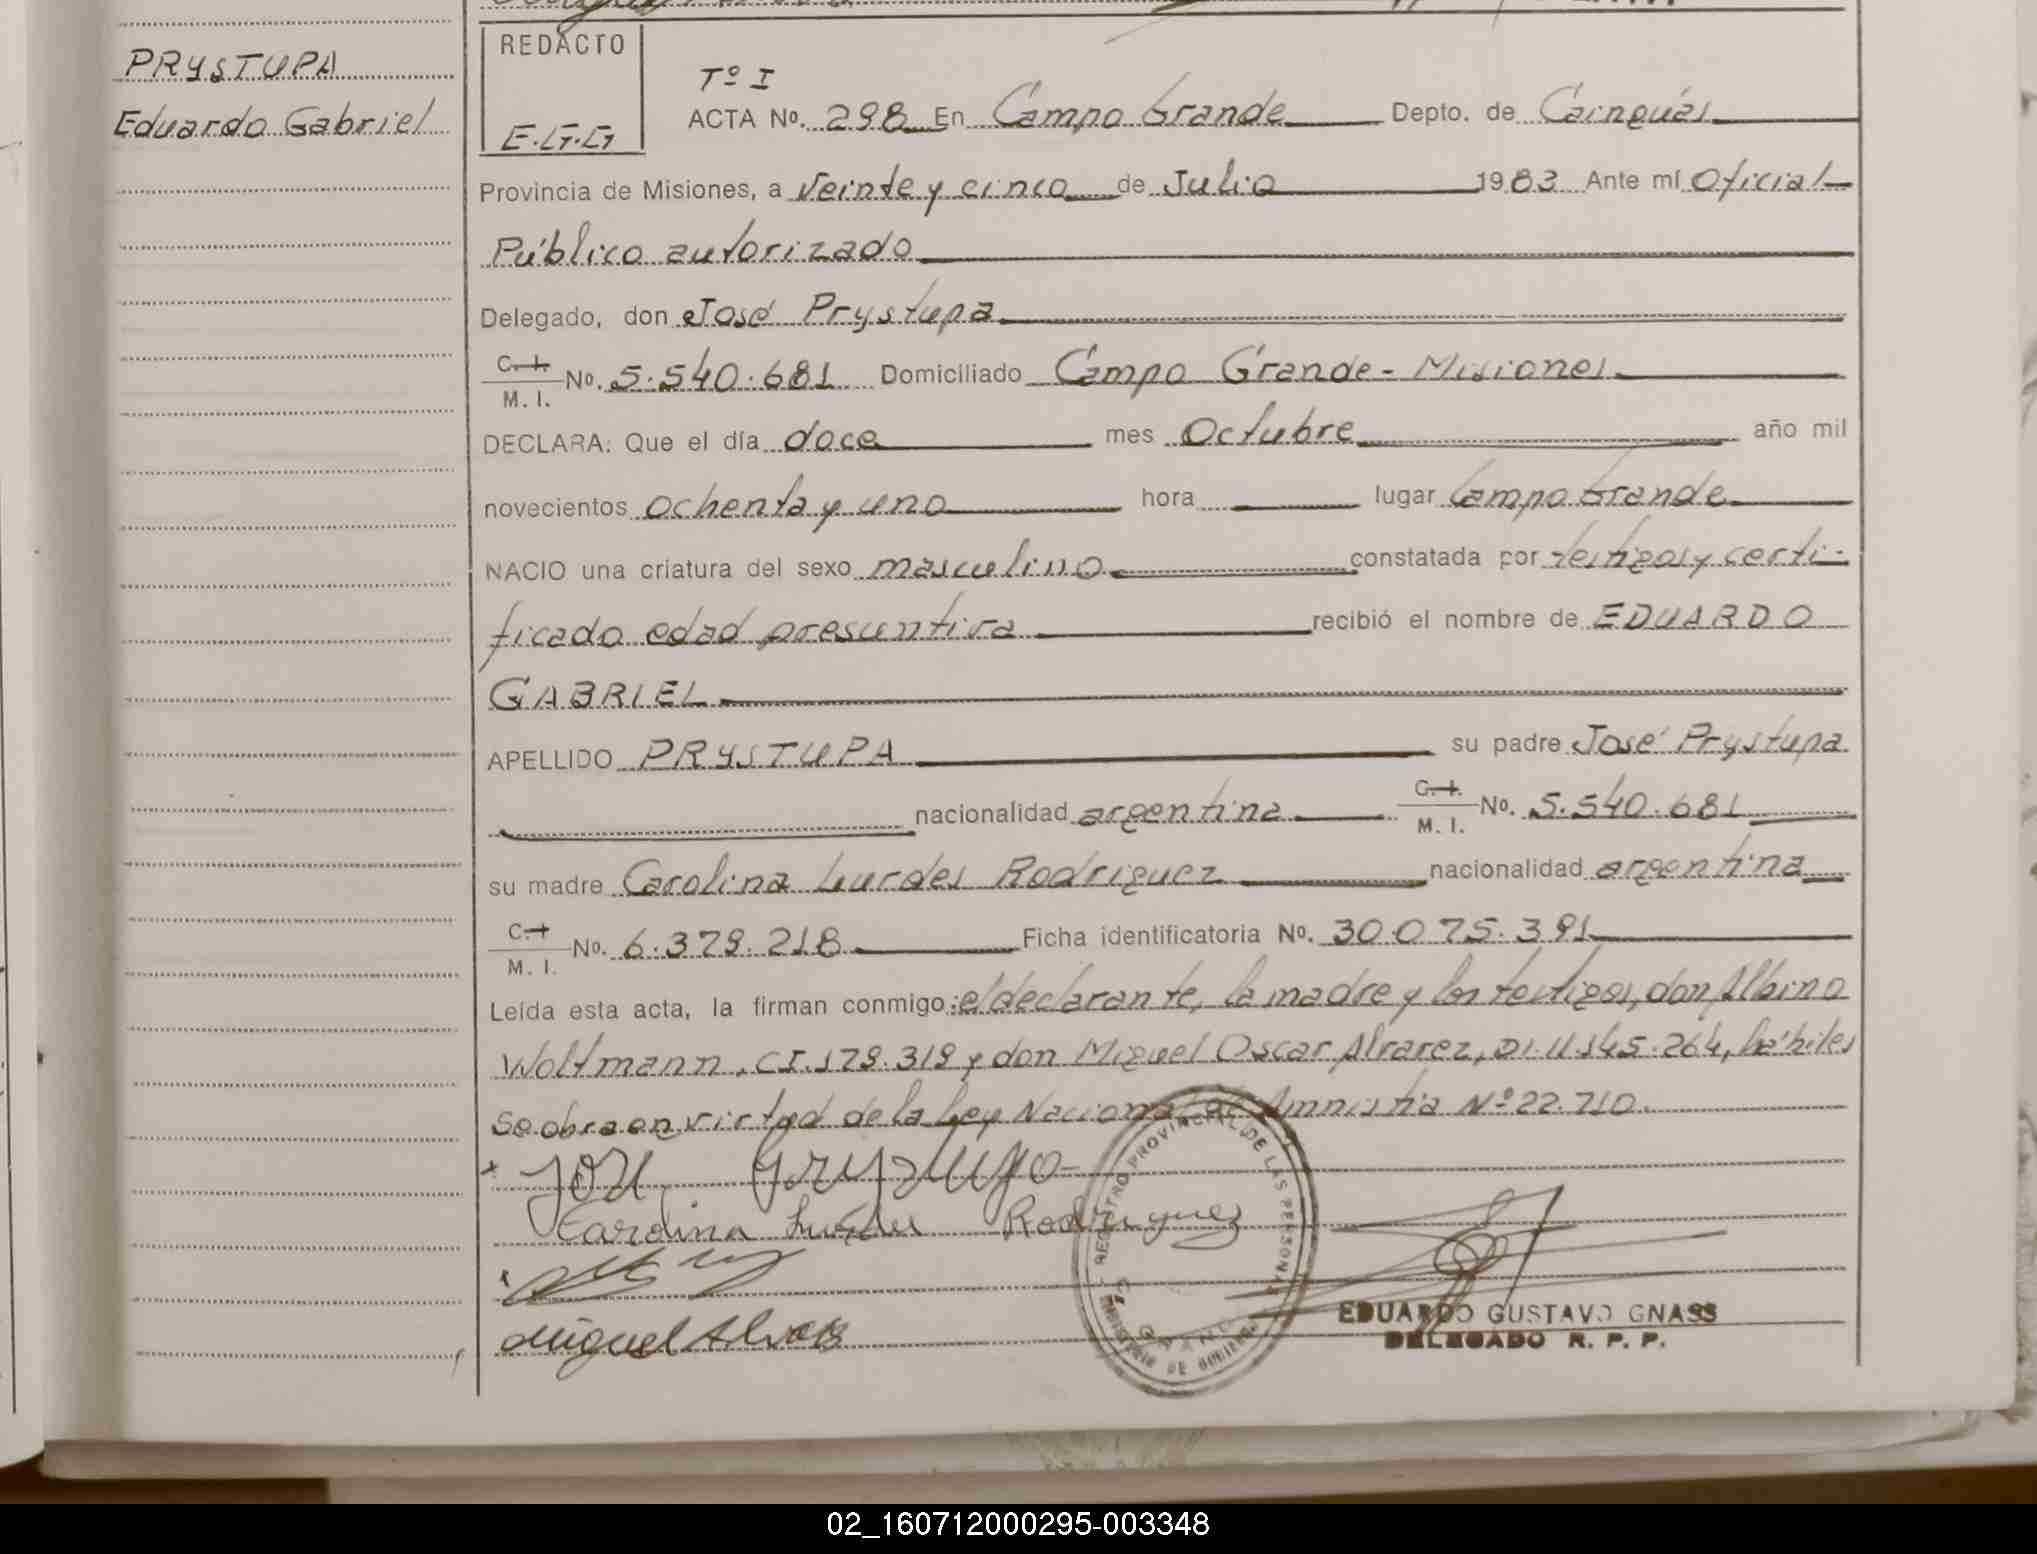 PRYSTUPA
Eduardo Gabriel
REDACTO
E.G.G
Tº I
ACTA Nº. 298 En Campo Grande Depto. de Cainguás
Provincia de Misiones, a Veinte y cinco de Julio 1983 Ante mí Oficial
Público autorizado
Delegado, don José Prystupa
C. I. M. I. Nº. 5.540.681 Domiciliado Campo Grande - Misiones
DECLARA: Que el día doce mes Octubre año mil
novecientos ochenta y uno hora lugar Campo Grande
NACIO una criatura del sexo masculino constatada por testigos y certi-
ficado edad presuntiva recibió el nombre de EDUARDO
GABRIEL
APELLIDO PRYSTUPA su padre José Prystupa
nacionalidad argentina C. I. M. I. Nº. 5.540.681
su madre Carolina Lurdes Rodriguez nacionalidad argentina
C. I M. I. Nº. 6.379.218 Ficha identificatoria Nº. 30.075.391
Leída esta acta, la firman conmigo: el declarante, la madre y los testigos, don Albino
Woltmann, CI.179.319 y don Miguel Oscar Alvarez, DI.11.145.264, hábiles
Se obra en virtud de la Ley Nacional de Amnistía Nº 22.710.
José Prystupa
Carolina Lurdes Rodriguez
Miguel Alvarez
REGISTRO PROVINCIAL DE LAS PERSONAS
MINISTERIO DE GOBIERNO
EDUARDO GUSTAVO GNASS
DELEGADO R. P. P.
02_160712000295-003348